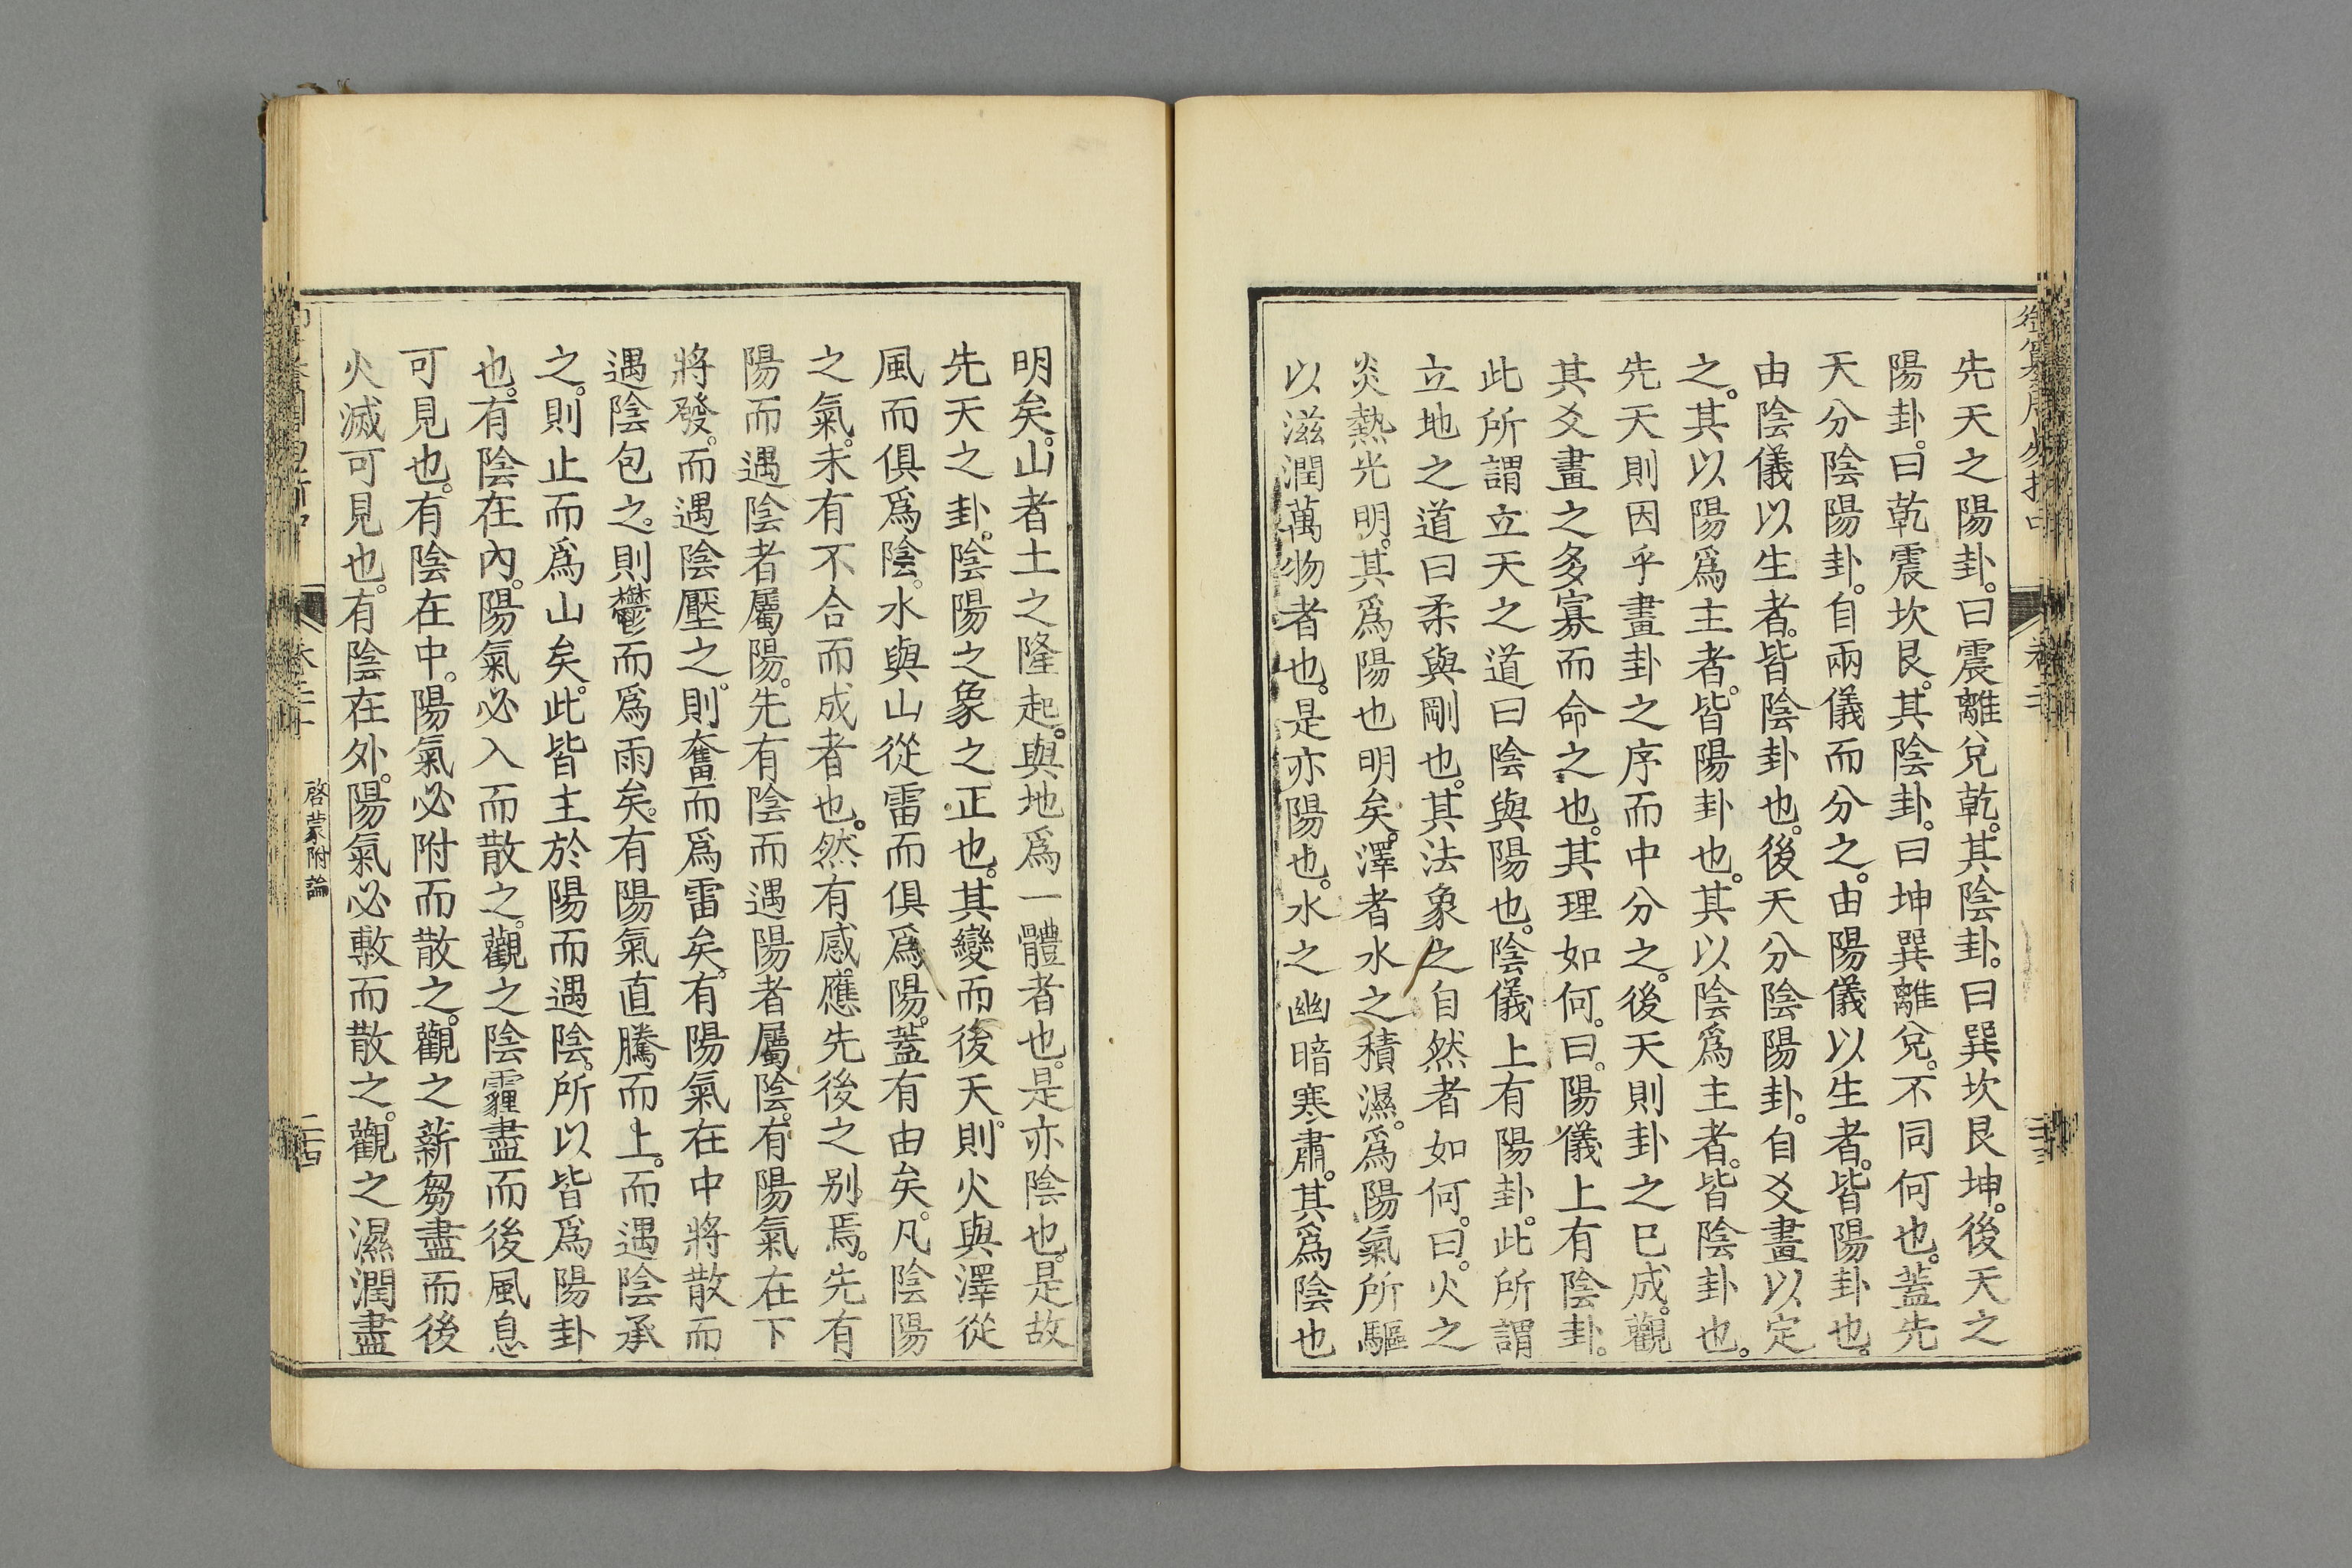 先天之陽卦。曰震離兌乾。其陰卦。曰巽坎艮坤。後天之
陽卦。曰乾震坎艮。其陰卦。曰坤巽離兌。不同何也。蓋先
天分陰陽卦。自兩儀而分之。由陽儀以生者。皆陽卦也。
由陰儀以生者。皆陰卦也。後天分陰陽卦。自爻畫以定
之。其以陽爲主者。皆陽卦也。其以陰爲主者。皆陰卦也。
先天則因乎畫卦之序而中分之。後天則卦之已成。觀
其爻畫之多寡而命之也。其理如何。曰。陽儀上有陰卦。
此所謂立天之道曰陰與陽也。陰儀上有陽卦。此所謂
立地之道曰柔與剛也。其法象之自然者如何。曰。火之
炎熱光明。其爲陽也明矣。澤者水之積濕。爲陽氣所驅
以滋潤萬物者也。是亦陽也。水之幽暗寒肅。其爲陰也
明矣。山者土之隆起。與地爲一體者也。是亦陰也。是故
先天之卦。陰陽之象之正也。其變而後天。則火與澤從
風而俱爲陰。水與山從雷而俱爲陽。蓋有由矣。凡陰陽
之氣。未有不合而成者也。然有感應先後之别焉。先有
陽而遇陰者屬陽。先有陰而遇陽者屬陰。有陽氣在下
將發。而遇陰壓之。則奮而爲雷矣。有陽氣在中將散而
遇陰包之。則鬱而爲雨矣。有陽氣直騰而上。而遇陰承
之。則止而爲山矣。此皆主於陽而遇陰。所以皆爲陽卦
也。有陰在內。陽氣必入而散之。觀之陰霾盡而後風息
可見也。有陰在中。陽氣必附而散之。觀之薪芻盡而後
火滅可見也。有陰在外。陽氣必敷而散之。觀之濕潤盡
啓蒙附論